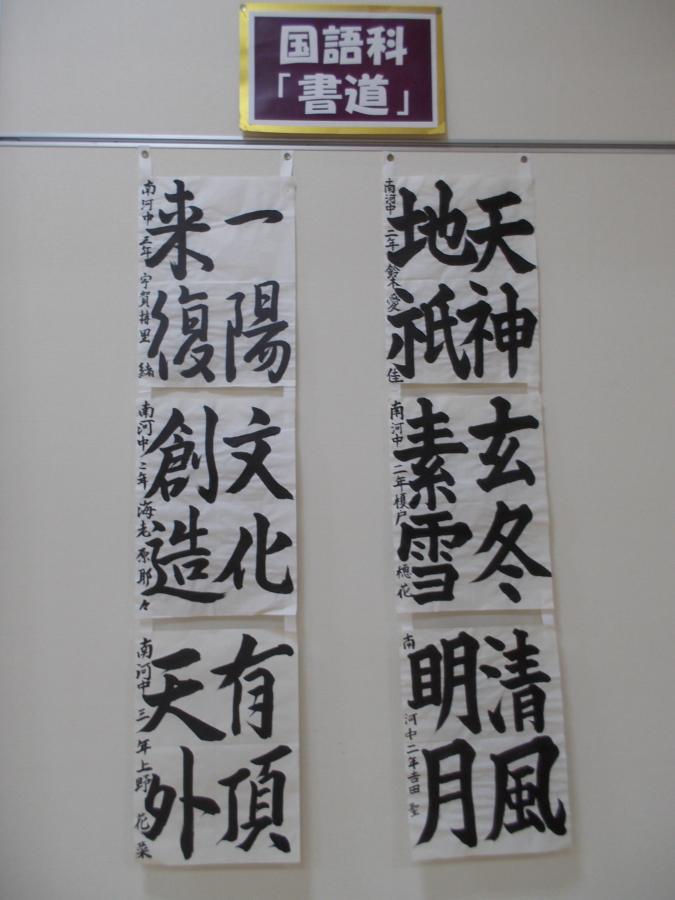 国語科
「書道」
天神
地祇
南河中 二年 鈴木愛佳
玄冬
素雪
南河中 二年 榎戸穂花
清風
明月
南河中二年 吉田聖
一陽
来復
南河中 三年 宇賀持里緒
文化
創造
南河中 三年 海老原那々
有頂
天外
南河中 三年 上野花菜